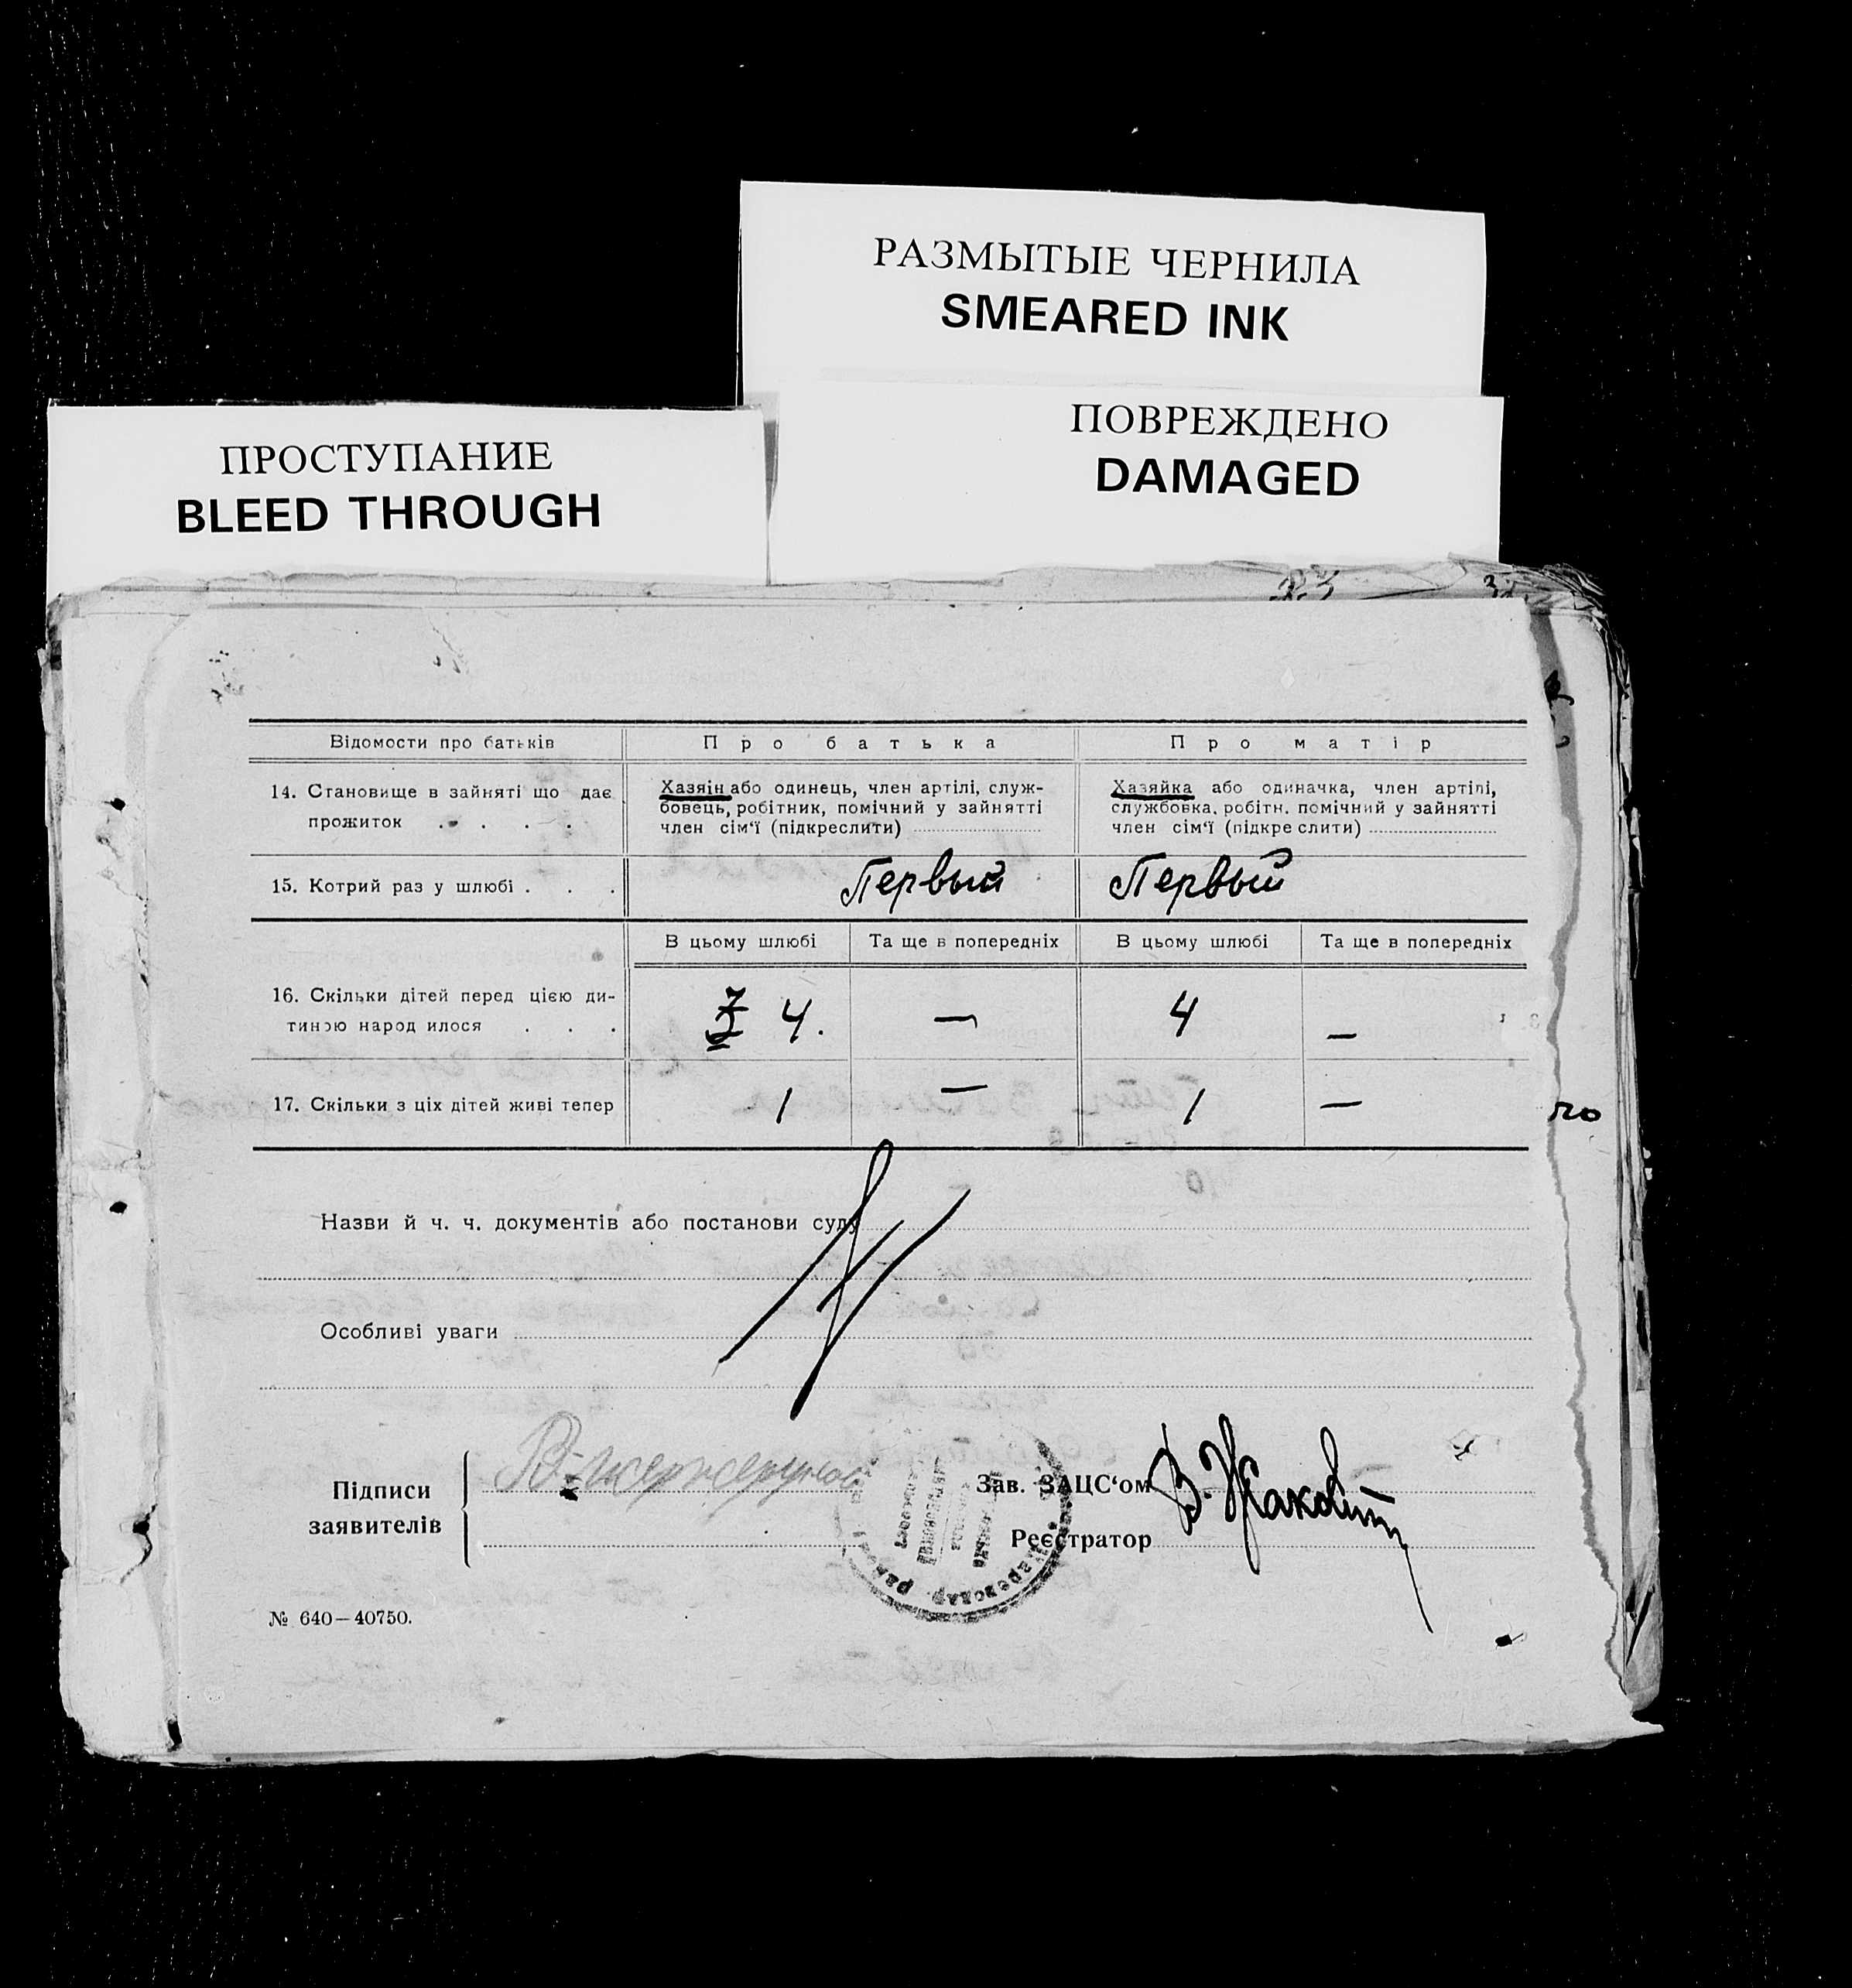 РАЗМЫТЫЕ ЧЕРНИЛА
SMEARED INK
ПОВРЕЖДЕНО
DAMAGED
ПРОСТУПАНИЕ
BLEED THROUGH
Відомости про батьків
Про батька
Про матір
14. Становище в зайняті що дає
прожиток . . . .
Хазяін або одинець, член артілі, служ-
бовець, робітник, помічний у зайнятті
член сім'ї (підкреслити)
Хазяйка або одиначка, член артілі,
службовка, робітн. помічний у зайнятті
член сім'ї (підкреслити)
15. Котрий раз у шлюбі . . .
Первый
Первый
В цьому шлюбі
Та ще в попередніх
В цьому шлюбі
Та ще в попередніх
16. Скільки дітей перед цією ди-
тиною народилося . . .
4.
—
4
—
17. Скільки з ціх дітей живі тепер
1
—
1
—
Назви й ч. ч. документів або постанови суду
Особливі уваги
Підписи
заявителів
Зав. ЗАЦС'ом
Реєстратор
№ 640—40750.